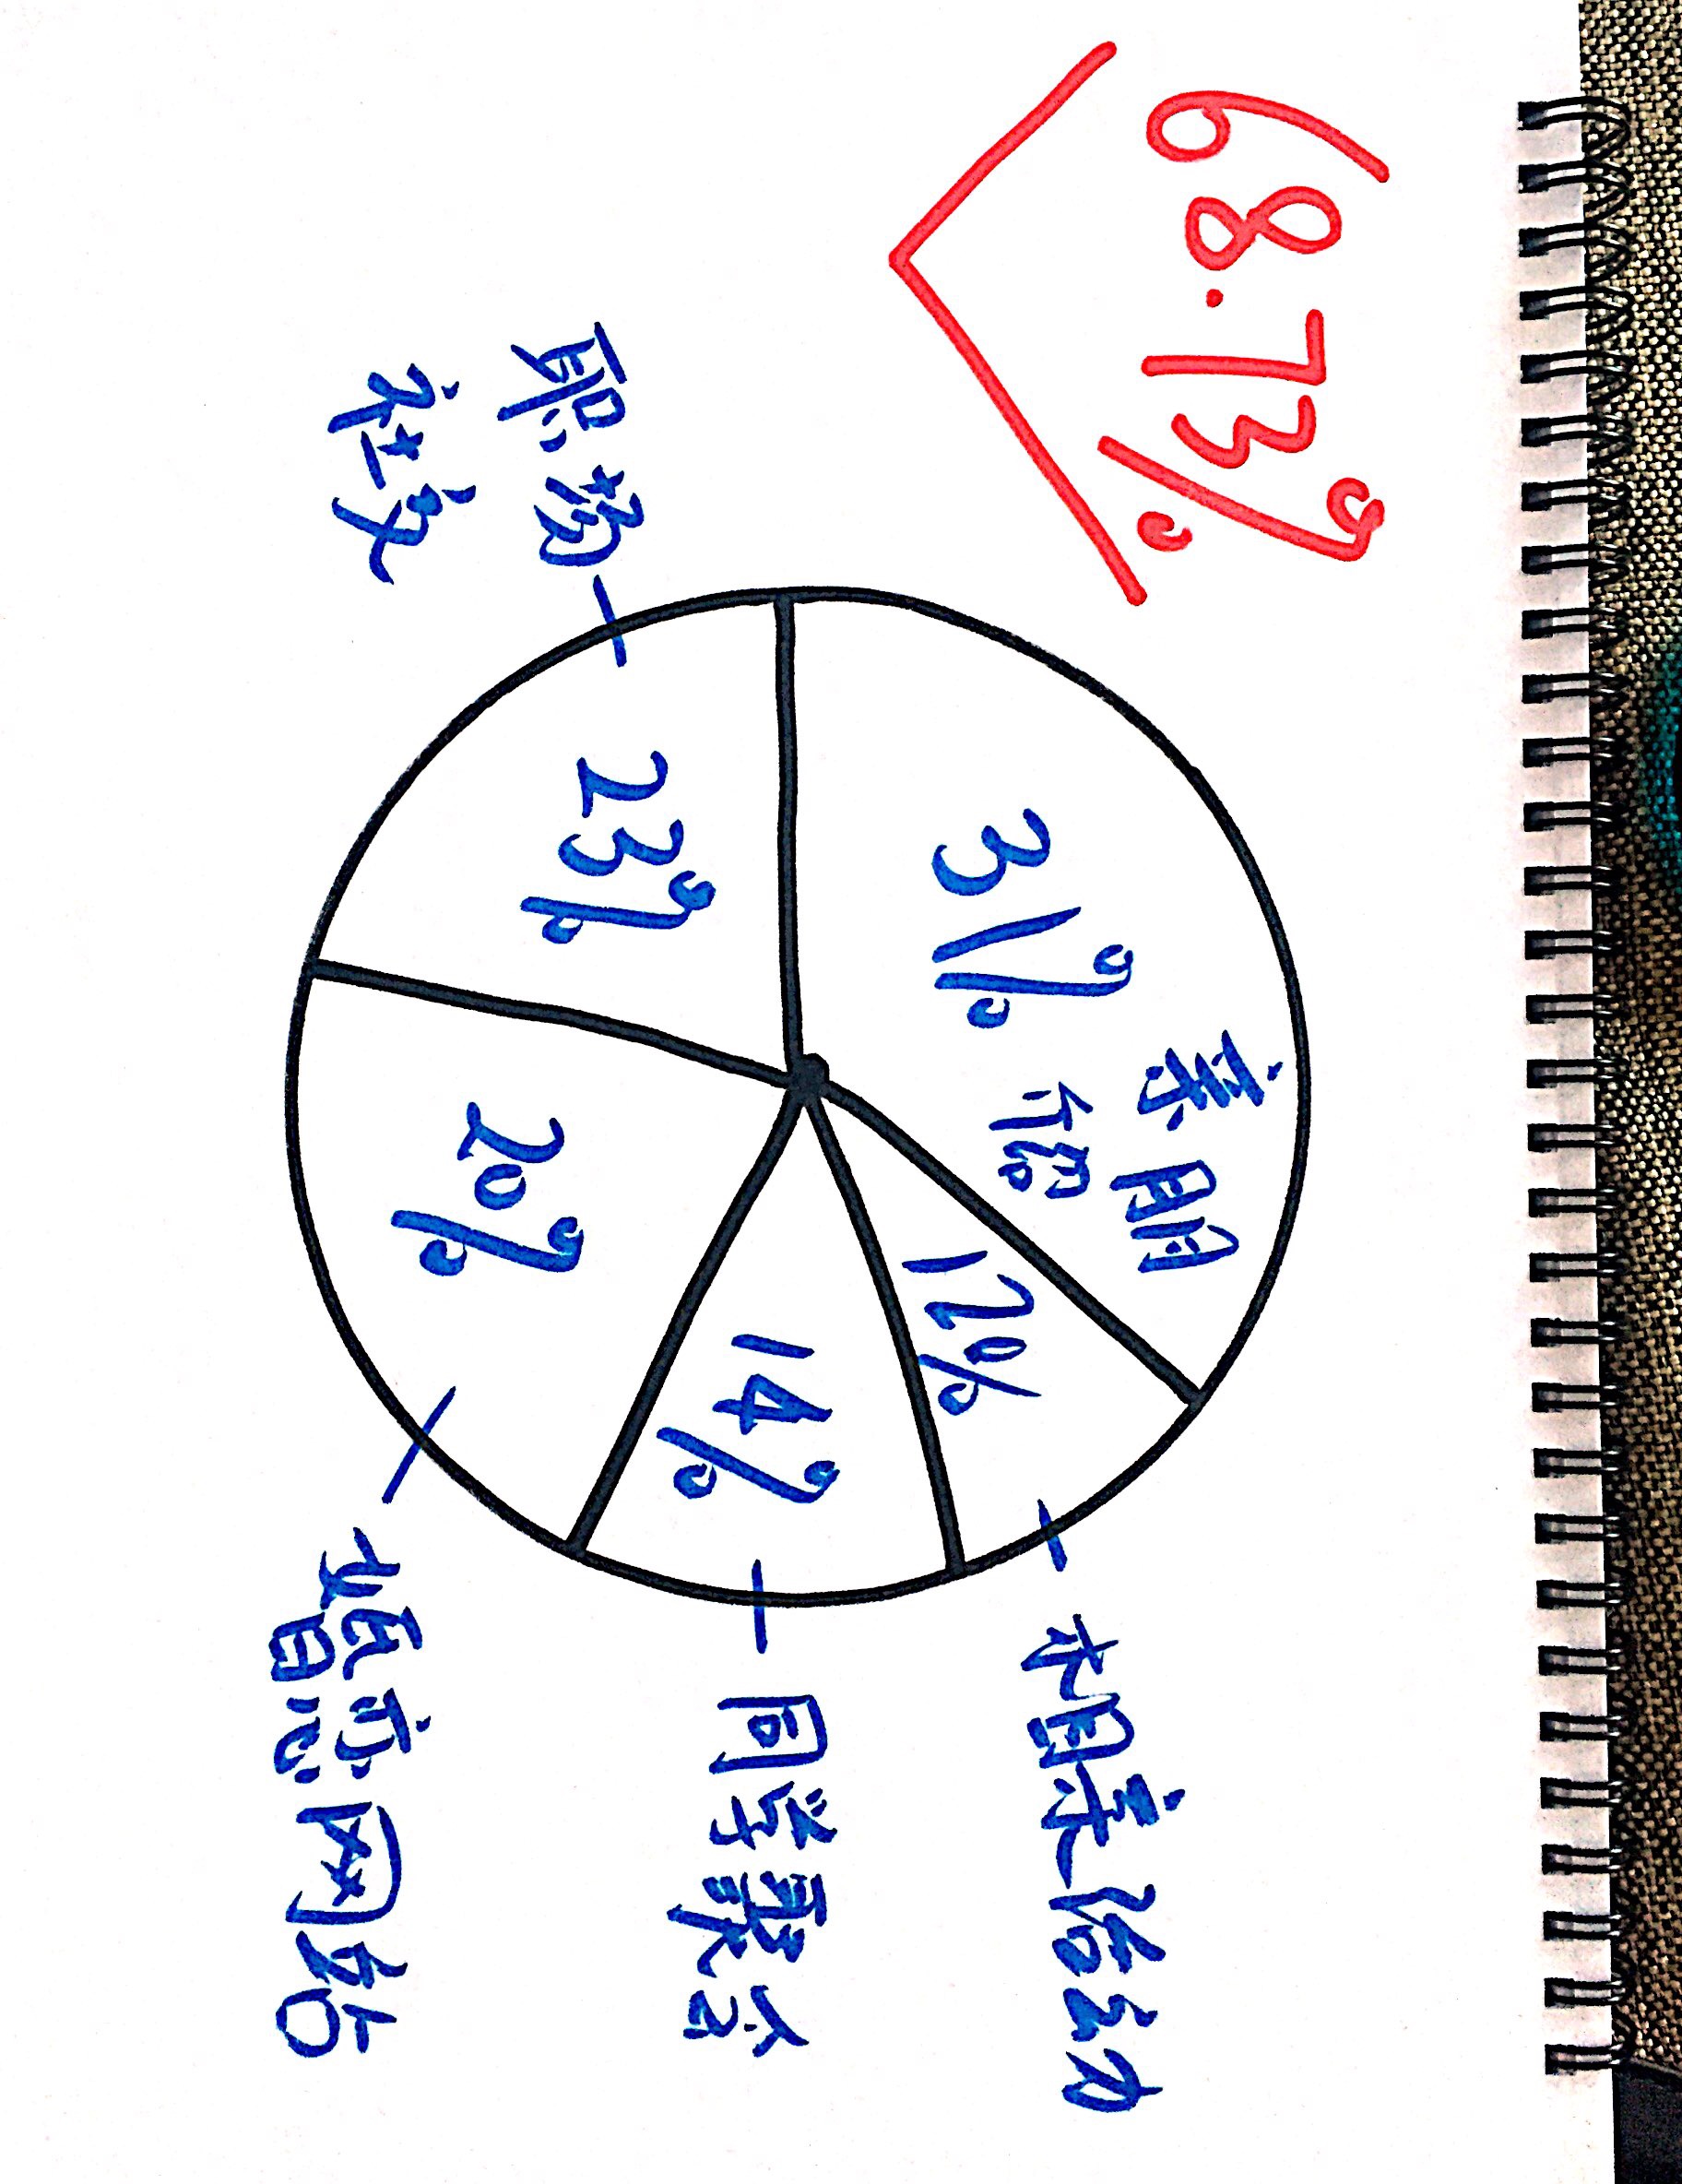 68.73%
31%
亲朋
介绍
12%
相亲活动
14%
同学聚会
职场
社交
23%
20%
婚恋网站